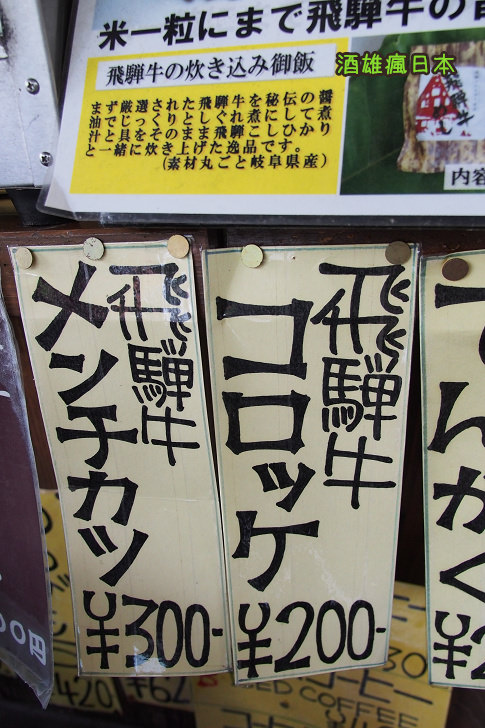 米一粒にまで飛騨牛の
酒雄瘋日本
飛騨牛の炊き込み御飯
まず厳選された飛騨牛を秘伝の醤
油でじっくりとしぐれ煮にして煮
汁と具をそのまま飛騨こしひかり
と一緒に炊き上げた逸品です。
(素材丸ごと岐阜県産)
飛騨牛
内容
飛騨牛
メンチカツ
¥300-
飛騨牛
コロッケ
¥200-
でんがく
¥2
00円
420
¥62
COFFEE